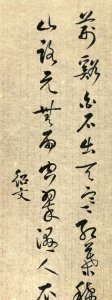 荊谿白石出天寒紅葉稀
山路元無雨空翠濕人衣
紹文